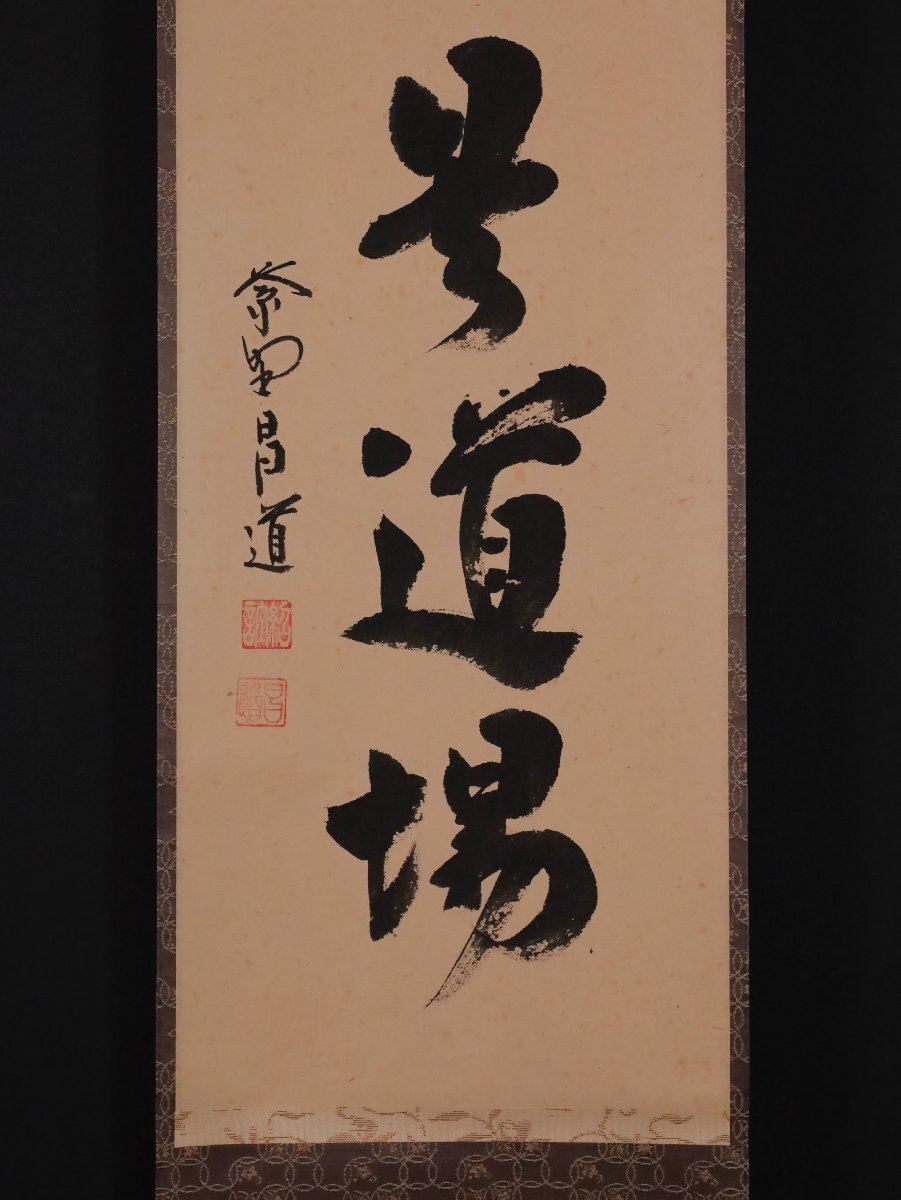 是道場
紫野昌道